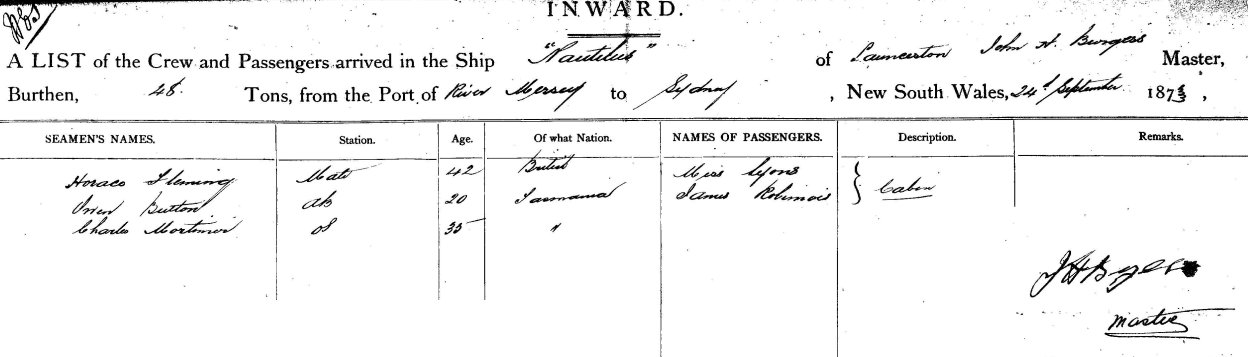 INWARD.
A LIST of the Crew and Passengers arrived in the Ship "Nautilus" of Launceston John H. Burgess Master,
Burthen, 48 Tons, from the Port of River Mersey to Sydney, New South Wales, 24 September 187
SEAMEN'S NAMES. Station. Age. Of what Nation. NAMES OF PASSENGERS. Description. Remarks.
Horace Fleming Mate 42 British Miss Lyons
Owen Button AB 20 Tasmania James Cabin
Charles Mortimer OS 35 "
Master